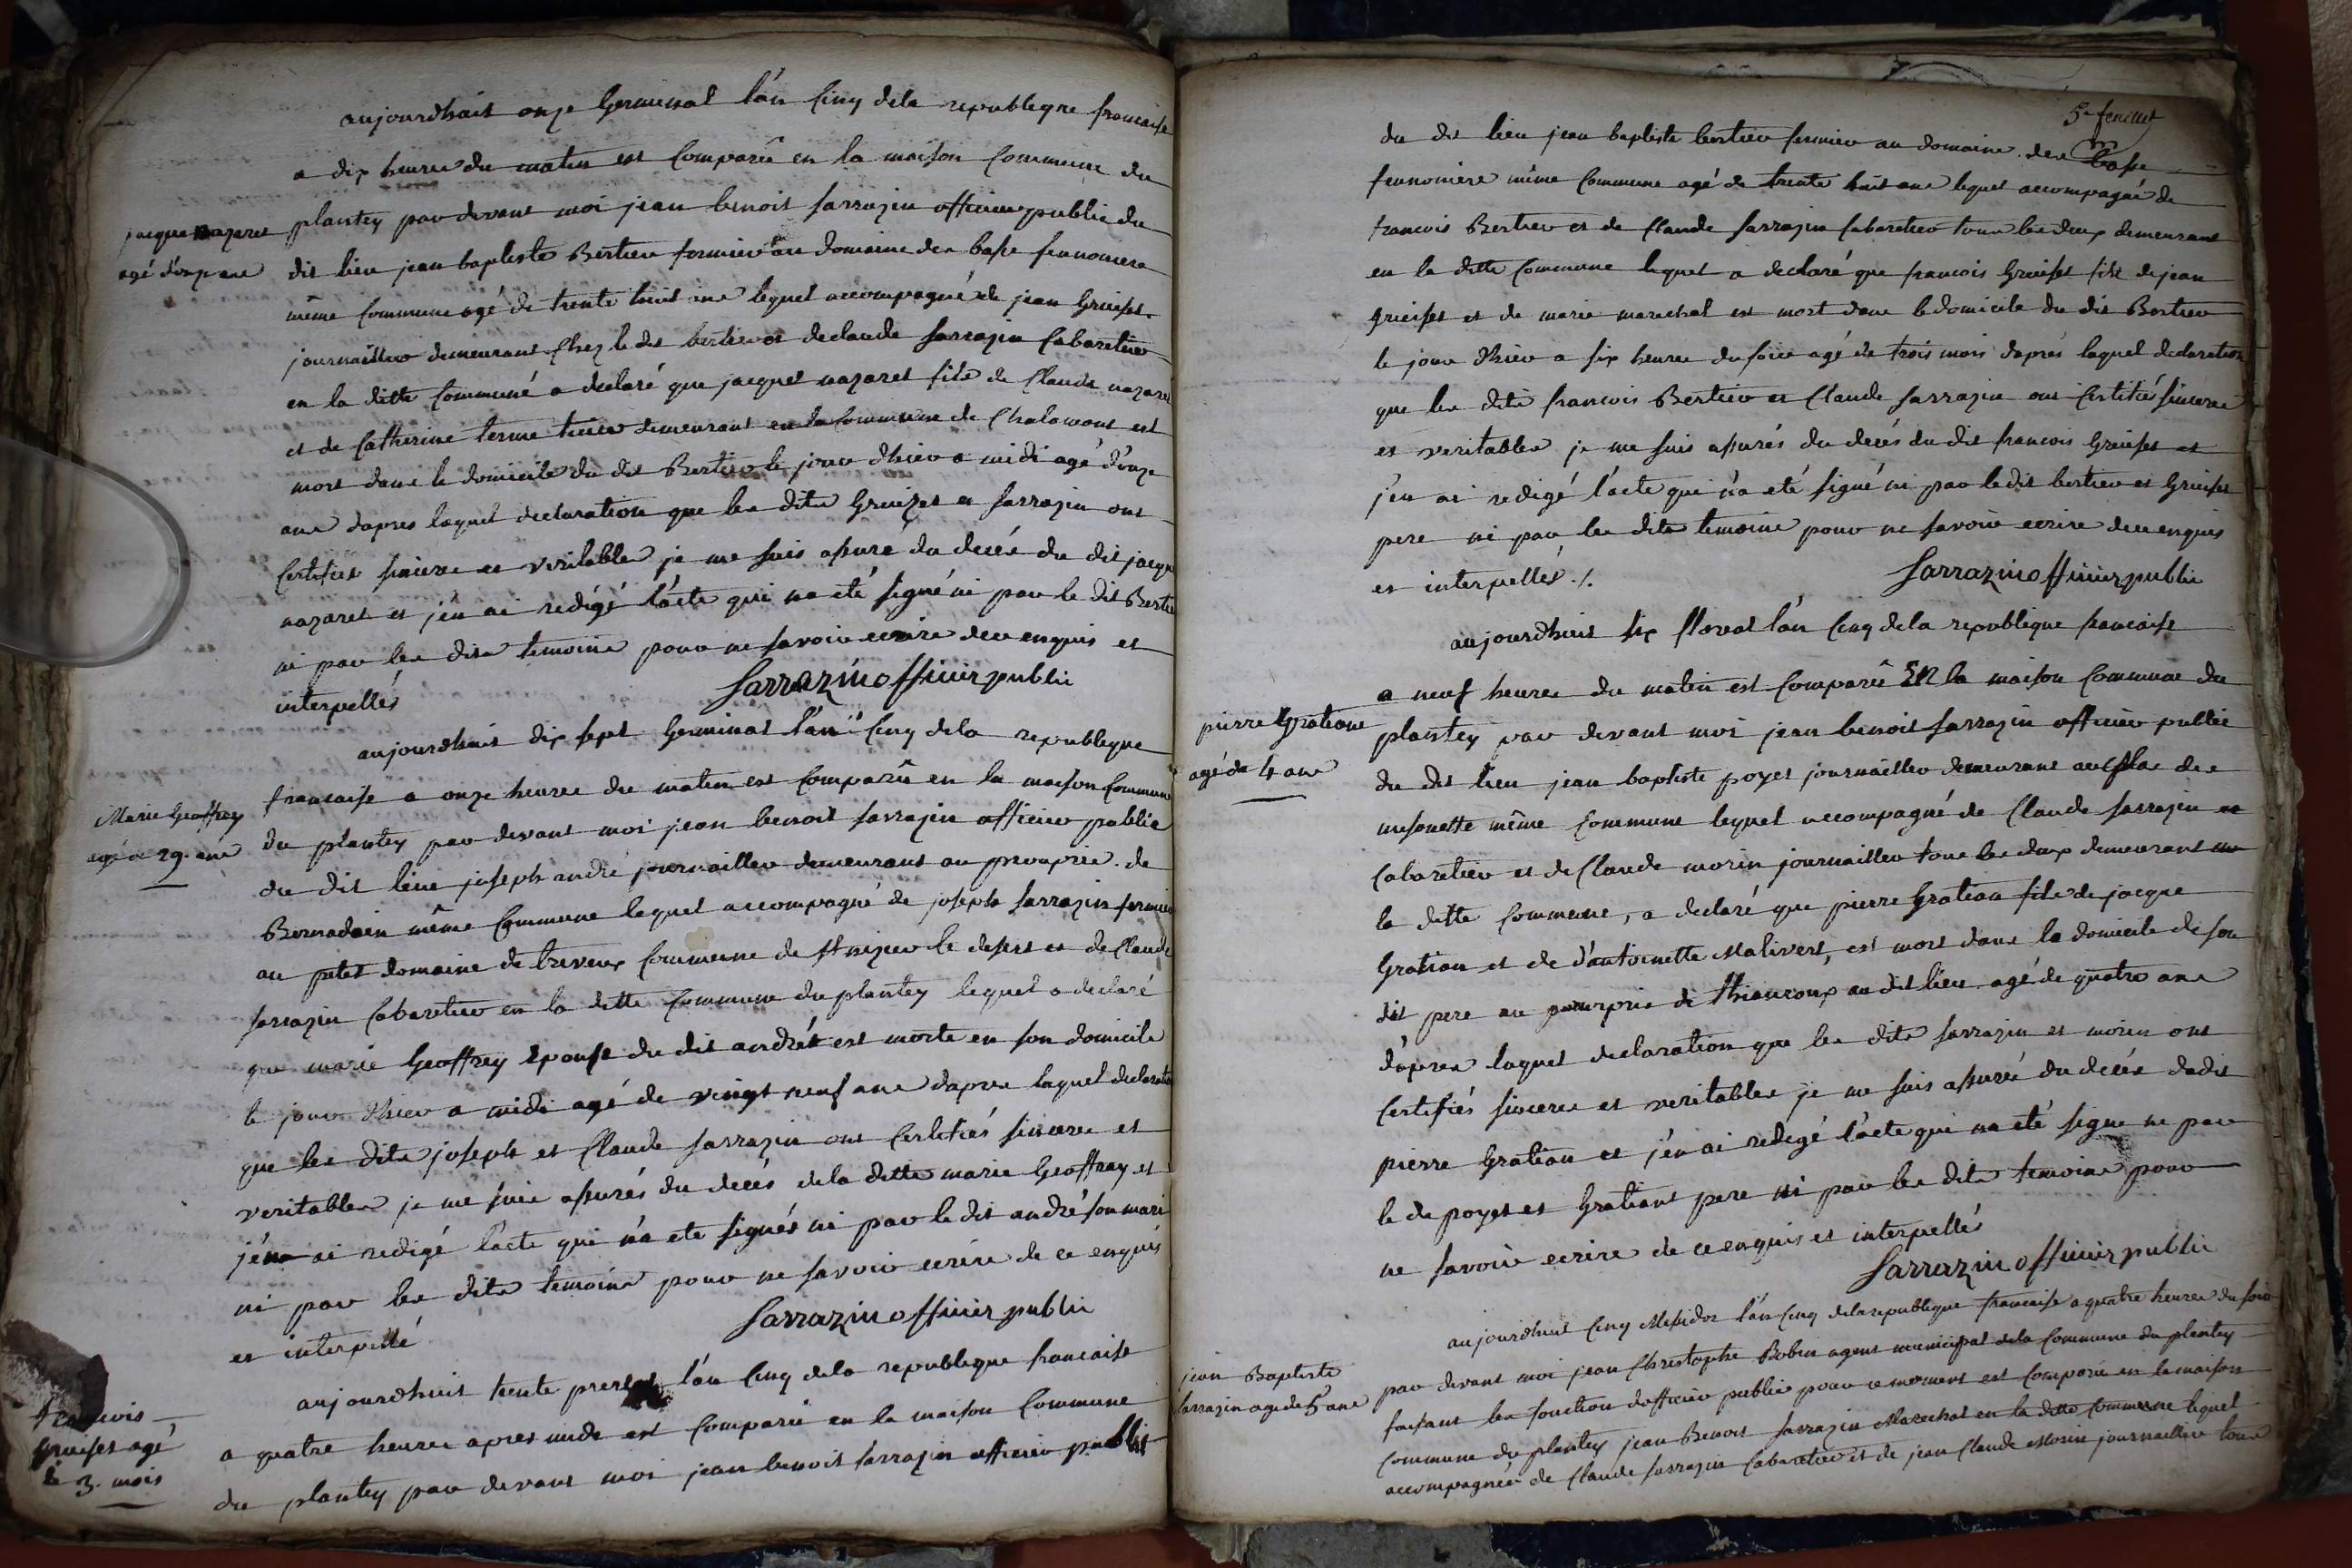 aujourdhuit onze Germinal l'an cinq dela republeque francaise
a dix heures du matin est comparû en la maison commune du
jacque nazaret
agé d'onze ans
plantey par devant moi jean benoit sarrazin officier public du
dit lieu jean baptiste Bertier fermier au domaine des basse fennoniere
même commune agé de trente huit ans lequel accompagné de jean Gruiset
journaillier demeurant chez le dit bertier et declaude sarrazin cabaretier
en la ditte communé a declaré que jacques nazaret fils de Claude nazaret
et de Catherine terme demeurant en la commune de Chalamont est
mort dans le domicile du dit Bertier le jour d'hier a midi agé d'onze
ans dapres laquel declaration que les dits Gruizet et sarrazin ont
certifiés sincere et veritable je me suis assuré du decés du dit jacque
nazaret et j'en ai redigé l'acte qui na eté signé ni par le dit Bertier
ni par les dits temoins pour ne savoir ecrire dece enquis et
interpellés
Sarrazin officier public
aujourdhuit dix sept Germinal l'an cinq dela republeque
francaise a onze heures du matin est comparû en la maison commune
Marie Geoffrey
agé de 29. ans
du plantey par devant moi jean benoit sarrazin officier public
du dit lieu joseph andré journaillier demeurant au prouprie de
Bernadain même commune lequel accompagné de joseph sarrazin fermier
au petit domaine de treveux commune de st nizier le desert et de Claude
sarrazin cabaretier en la ditte commune du plantey lequel a declaré
que marie Geoffrey Epouse du dit andrés est morte en son domicile
le jour d'hier a midi agé de vingt neuf ans dapres laquel declaration
que les dits joseph et Claude sarrazin ont certifiés sincere et
veritables je me suis assurés du decés dela ditte marie Geoffray et
j'en ai redigé l'acte qui n'a eté signés ni par le dit andré son mari
ni par les dits temoins pour ne savoir ecrire de ce enquis
et interpellé
Sarrazin officier public
aujourdhuit trente l'an cinq dela republeque francaise
francois
Gruiset agé
de 3. mois
a quatre heures apres midi est comparû en la maison commune
du plantey par devant moi jean benoit sarrazin officier public
5e feuillet
du dit lieu jean baptiste bertier fermier au domaine des basse
fennoniere même commune agé de trente huit ans lequel accompagné de
francois Bertier et de Claude sarrazin cabaretier tous les deux demeurant
en la ditte commune lequel a declaré que francois Gruiset fils de jean
gruiset et de marie marechal est mort dans le domicile du dit Bertier
le jour d'hier a six heures du soir agé de trois mois daprés laquel declaration
que les dits francois Bertier et Claude sarrazin ont certifiés sincere
et veritables je me suis assurés du decés du dit francois Gruiset et
j'en ai redigé l'acte qui n'a eté signé ni par le dit bertier et Gruiset
pere ni par les dits temoins pour ne savoir ecrire dece enquis
et interpellés ./.
Sarrazin officier public
aujourdhuit six floreal l'an cinq dela republique francaise
a neuf heures du matin est comparû En la maison commune du
pierre Gratiant
agé de 4 ans
plantey par devant moi jean benoit sarrazin officier public
du dit lieu jean baptiste poyet journaillier demeurant au des
musonette même commune lequel accompagné de Claude sarrazin
cabaretier et de Claude morin journaillier tous les deux demeurant en
la ditte commune, a declaré que pierre Gration fils de jacque
Gration et de d'antoinette Malivert, est mort dans le domicile de son
dit pere au pourprie de thianroux au dit lieu agé de quatre ans
d'apres laquel declaration que les dits sarrazin et morin ont
certifiés sinceres et veritables je me suis assurés du decés dudit
pierre Gration et j'en ai redigé l'acte qui na eté signe ne par
le dit poyet et Gratiant pere ni par les dits temoins pour
ne savoir ecrire de ce enquis et interpellé
Sarrazin officier public
aujourdhuit cinq Messidor l'an cinq dela republique francaise a quatre heures du soir
jean Baptiste
sarrazin agé de 5 ans
par devant moi jean Christophe Bobin agent municipal dela commune du plantey
faisant les fonction d'officier public pour ce moment est comparu en la maison
commune du plantey jean Benoit sarrazin Marechal en la ditte commune lequel
accompagnés de Claude sarrazin cabaretier et de jean Claude Morin journaillier tous